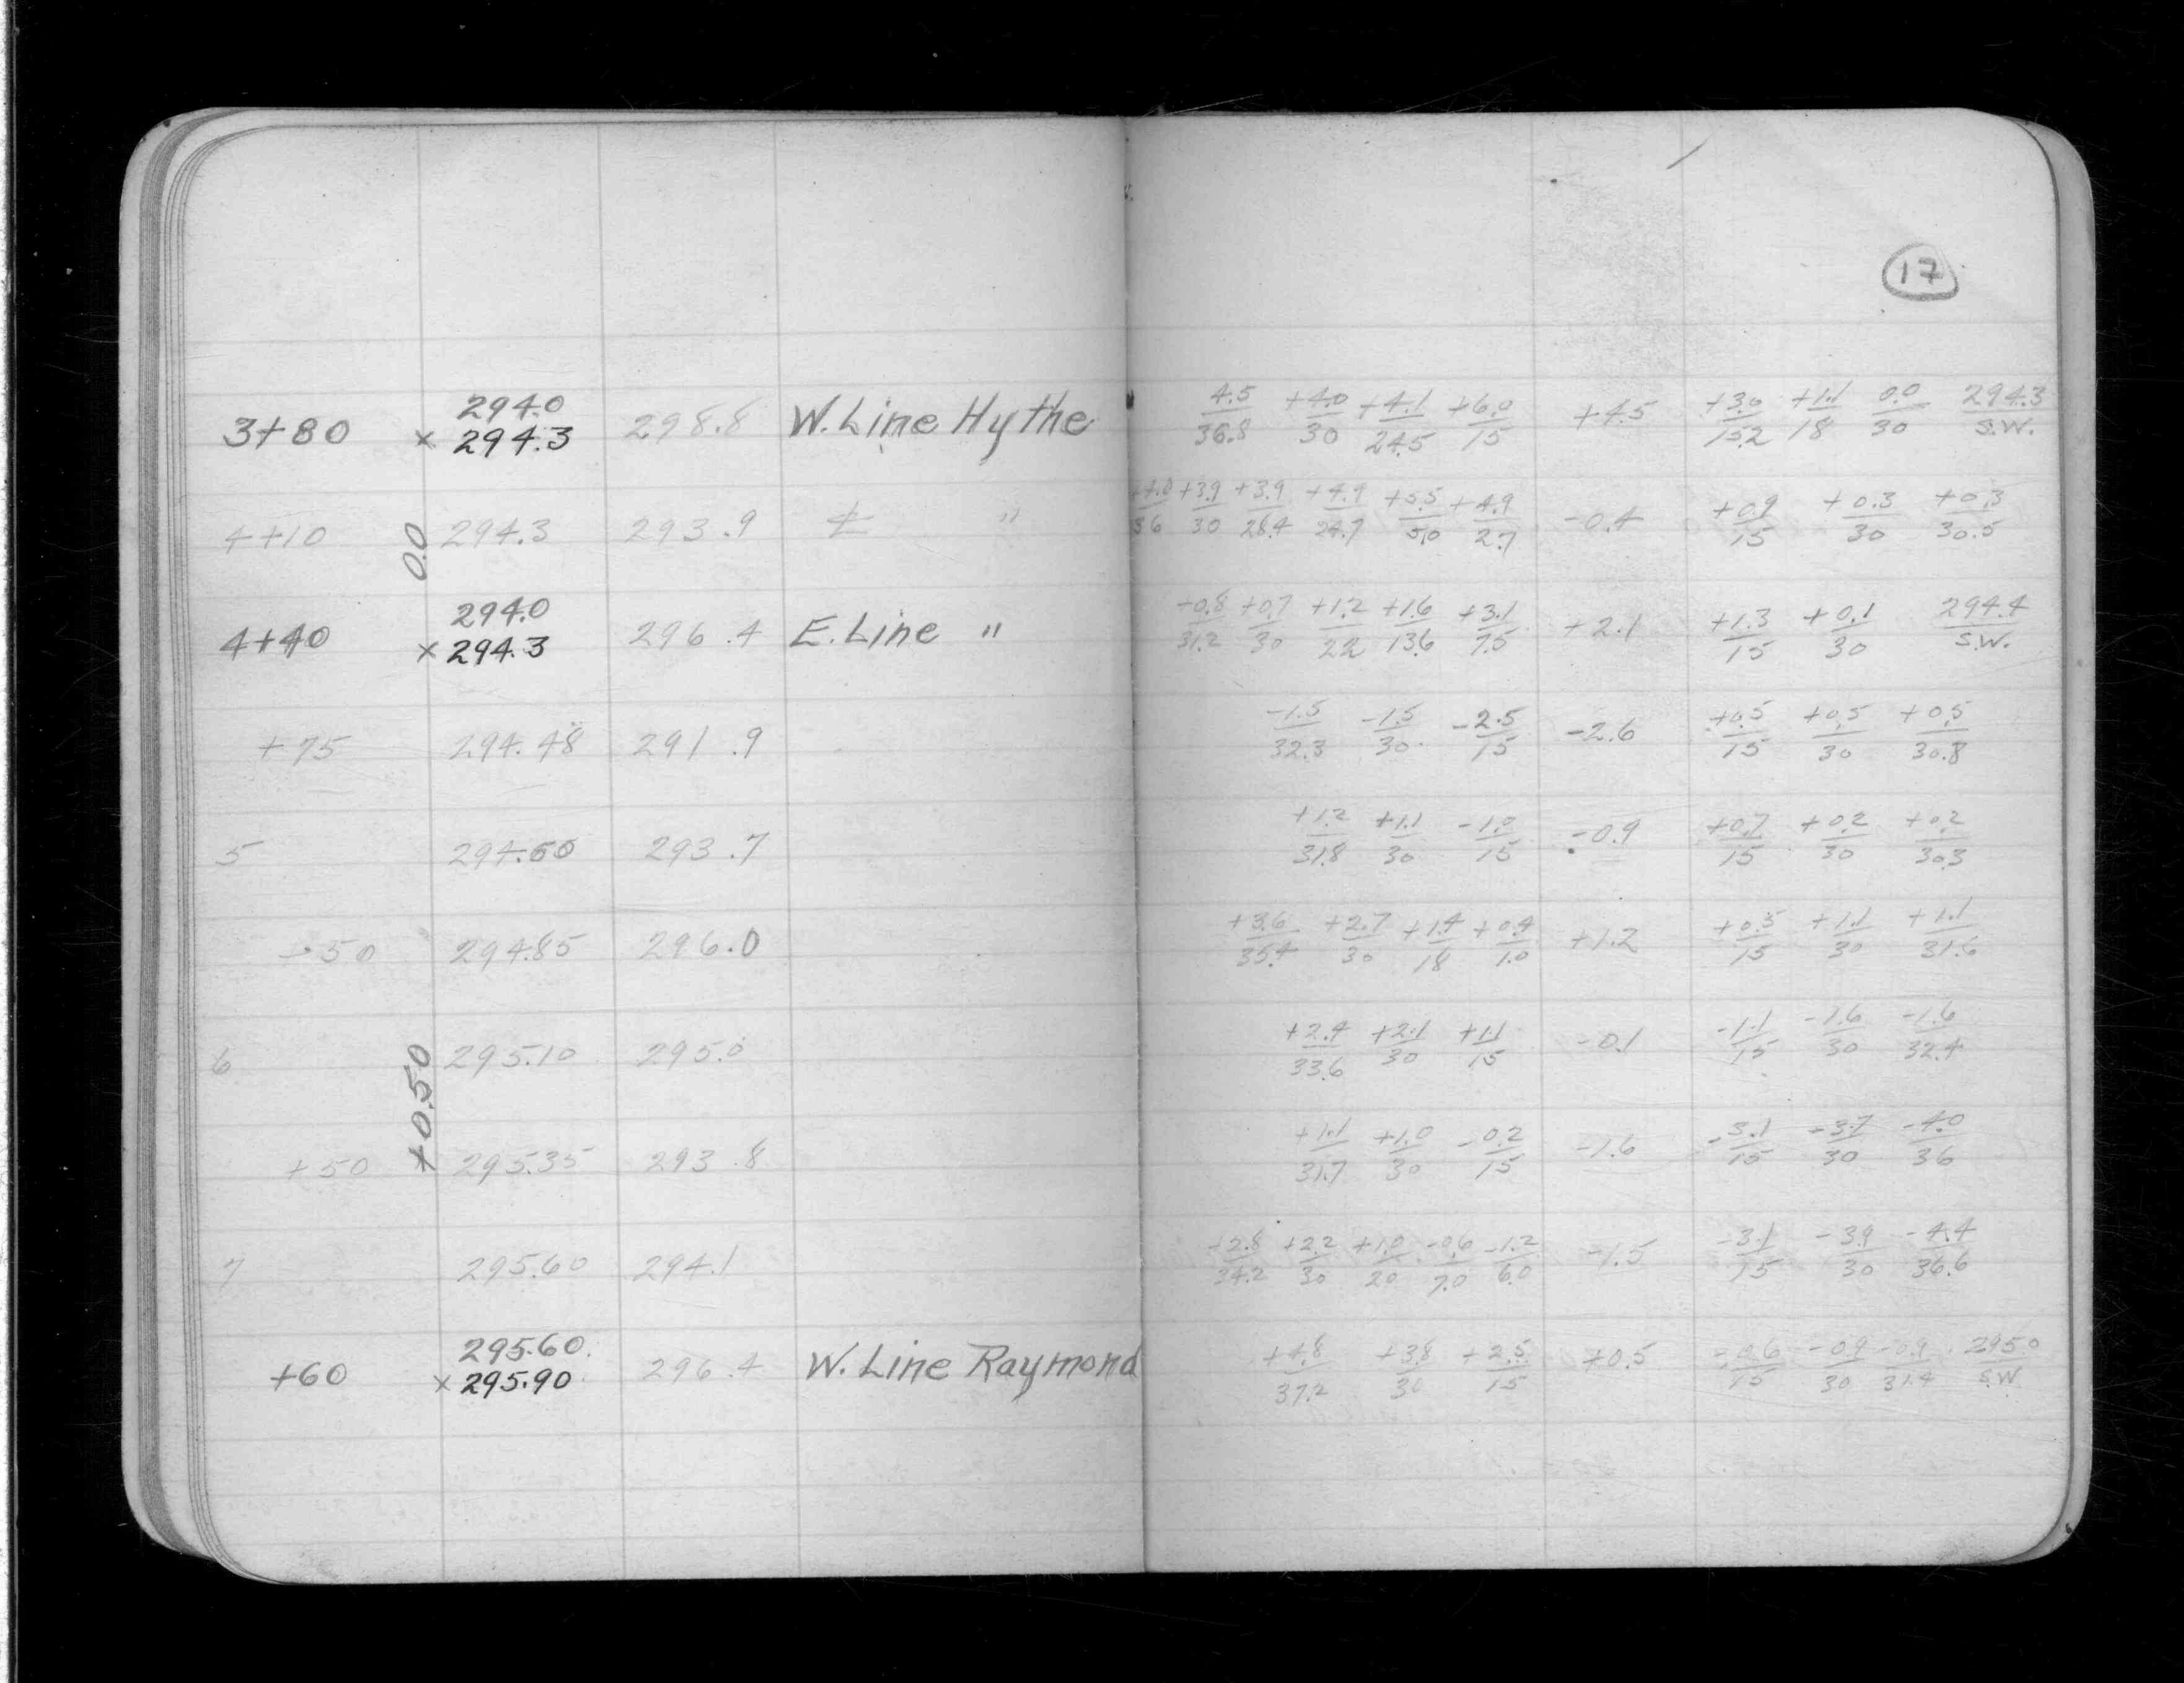 17
294.0 4.5 +4.0 +4.1 +6.0 +3.0 +1.1 0.0 294.3
3+80 × 294.3 298.8 W. Line Hythe 36.8 30 24.5 15 +4.5 15.2 18 30 S.W.
+3.9 +3.9 +4.9 +5.5 +4.9 +0.9 +0.3 +0.3
4+10 0.0 294.3 293.9 ℄ " 36 30 28.4 24.7 5.0 2.7 -0.4 15 30 30.5
294.0 +0.8 +0.7 +1.2 +1.6 +3.1 +1.3 +0.1 294.4
4+40 × 294.3 296.4 E. Line " 31.2 30 22 13.6 7.5 +2.1 15 30 S.W.
-1.5 -1.5 -2.5 +0.5 +0.5 +0.5
+75 294.48 291.9 32.3 30 15 -2.6 15 30 30.8
+1.2 +1.1 -1.0 +0.7 +0.2 +0.2
5 294.60 293.7 31.8 30 15 -0.9 15 30 30.3
+3.6 +2.7 +1.4 +0.4 +0.5 +1.1 +1.1
+50 294.85 296.0 35.4 30 18 1.0 +1.2 15 30 31.6
+2.4 +2.1 +1.1 -1.1 -1.6 -1.6
6 295.10 295.0 33.6 30 15 -0.1 15 30 32.4
+0.50
+1.1 +1.0 -0.2 -3.1 -3.7 -4.0
+50 295.35 293.8 31.7 30 15 -1.6 15 30 36
+2.8 +2.2 +1.0 -0.6 -1.2 -3.1 -3.9 -4.4
7 295.60 294.1 34.2 30 20 7.0 6.0 -1.5 15 30 36.6
295.60 +4.8 +3.8 +2.5 -0.6 -0.9 -0.9 295.0
+60 × 295.90 296.4 W. Line Raymond 37.2 30 15 +0.5 15 30 31.4 S.W.